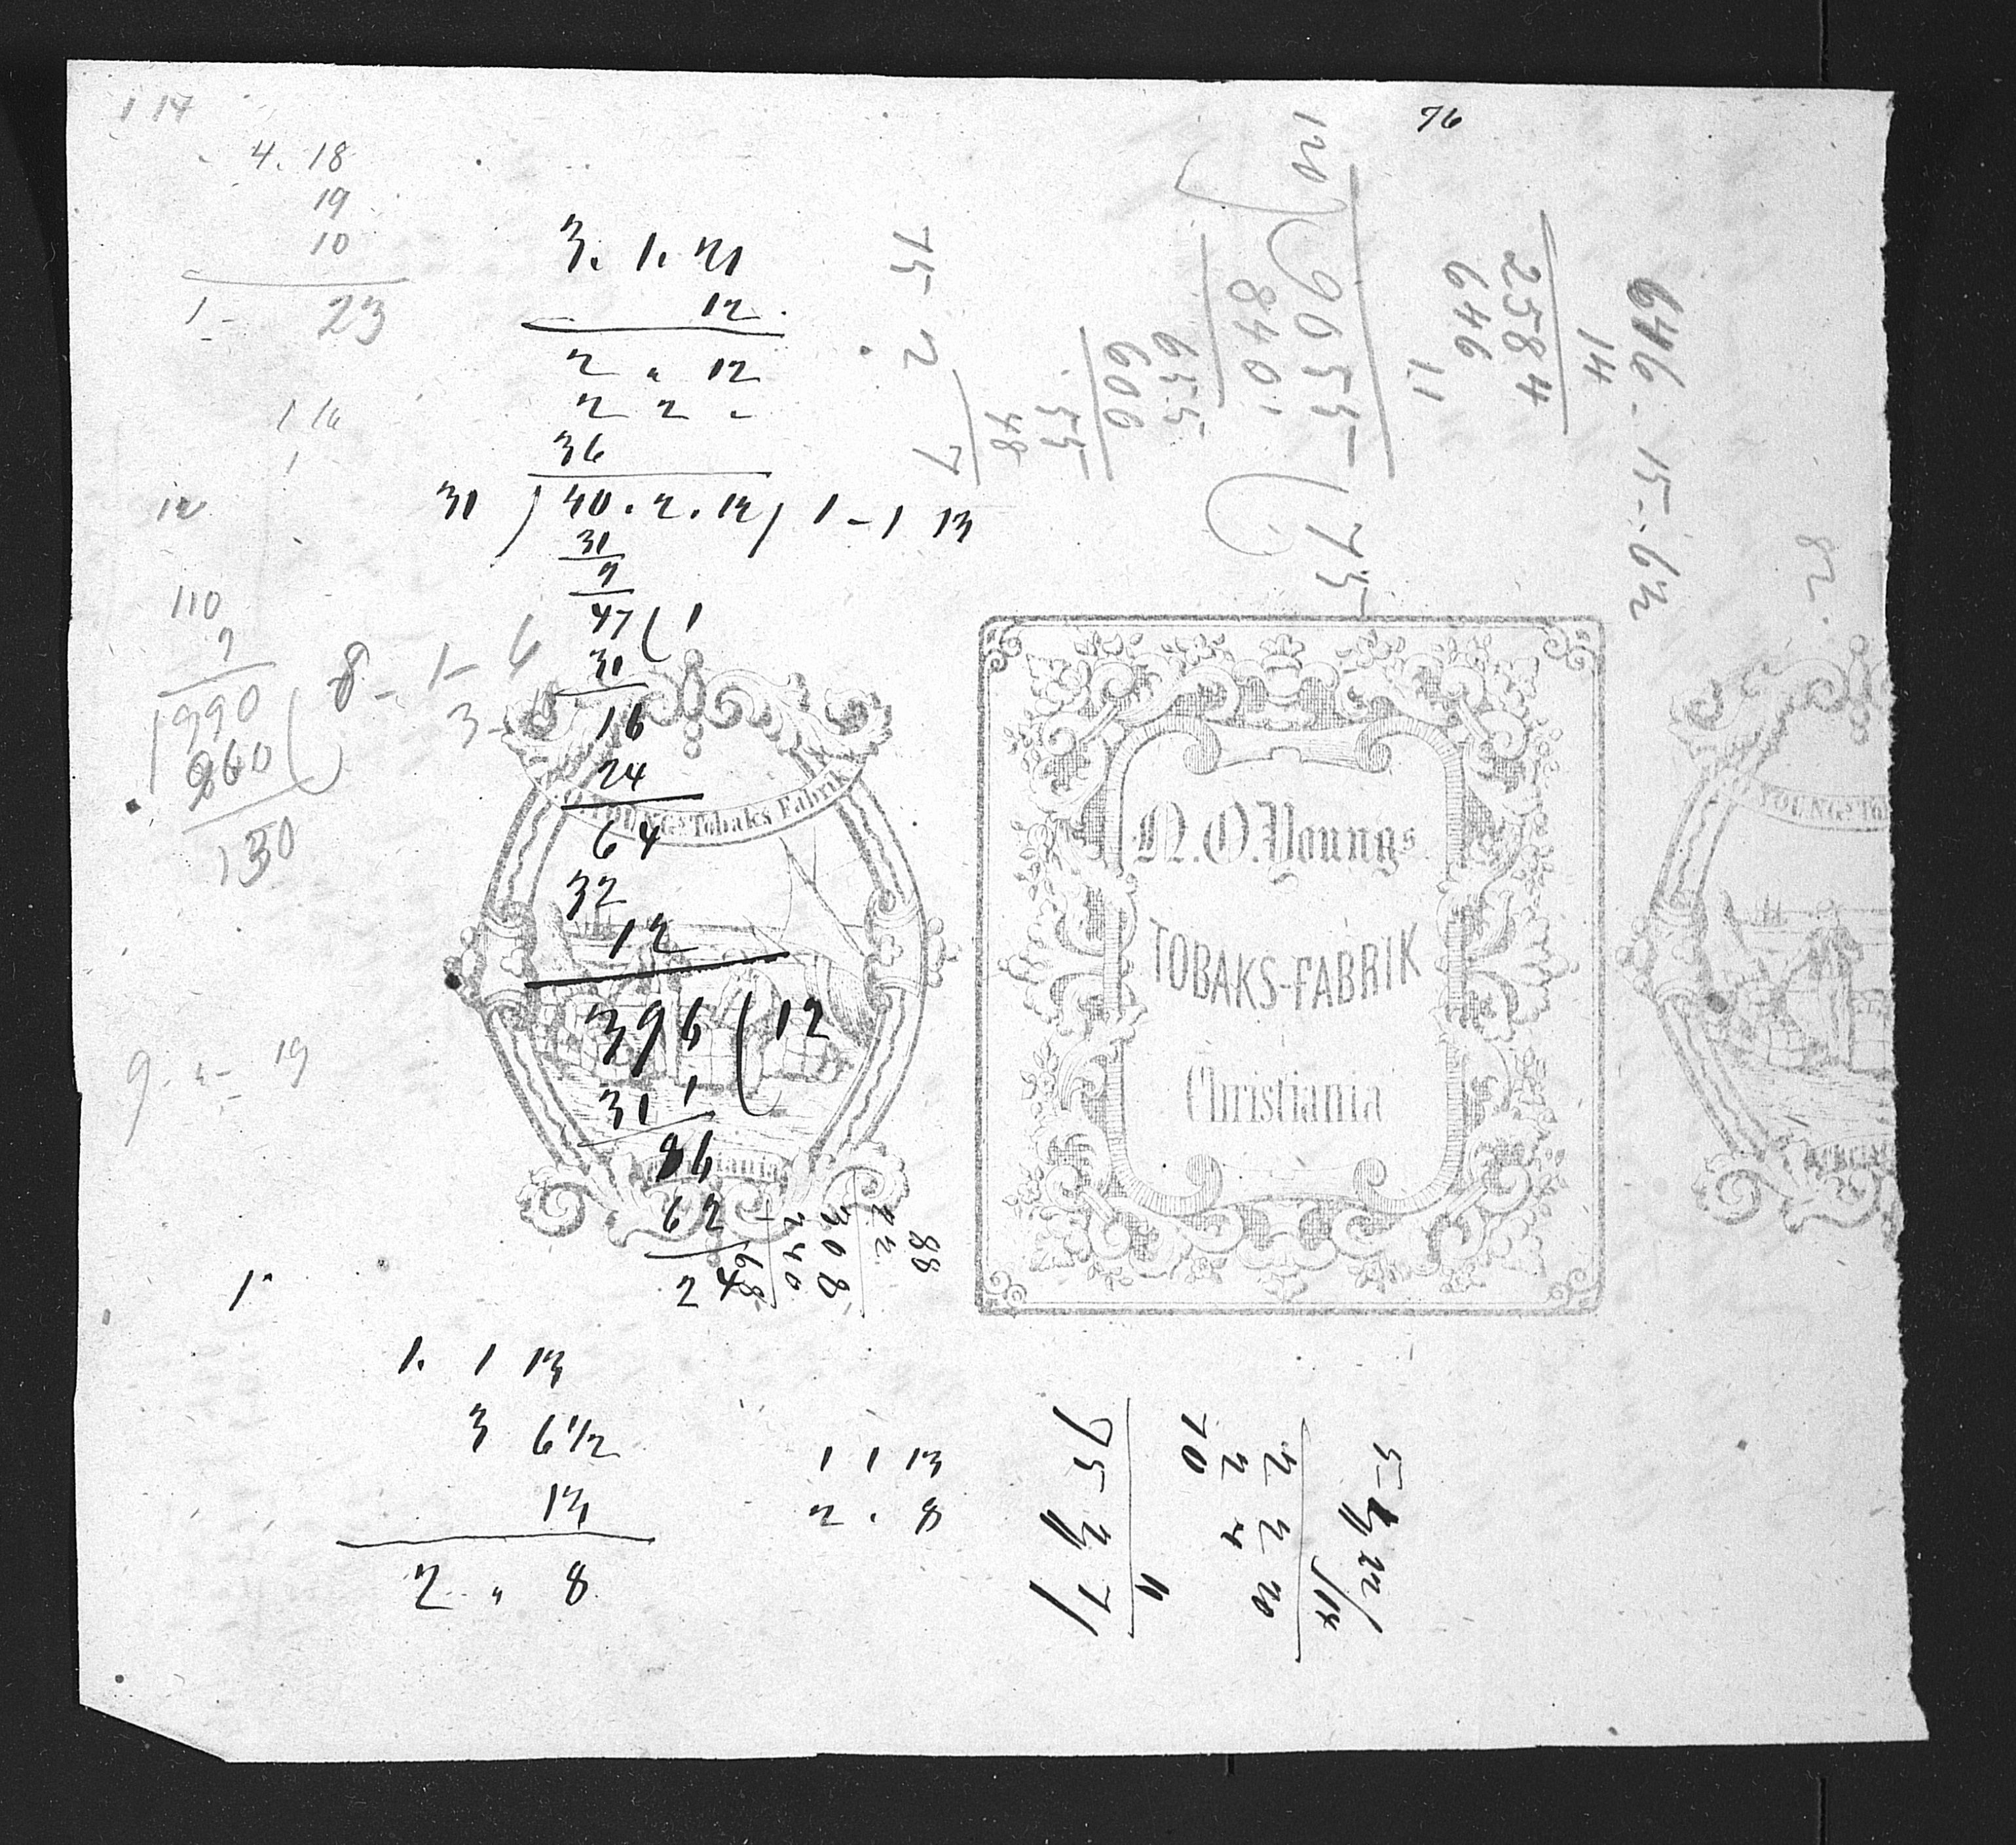 1 14
4. 18
19
10
1 - 23
1 16
12
110
9
990
860
130
8 - 1 - 6
3 -
9 . " - 19
1
3. 1. 21
12
2 " 12
2 2 -
36
31 ) 40 . 2 . 12 / 1 - 1 13
31
9
47 ( 1
31
16
24
64
32
12
396 ( 12
31 1
86
62
24
88
22
308
240
68
1. 1 13
3 6 1/2
13
2 " 8
1 1 13
2 . 8
76
646 . 15 - . 62
14
2584
646
11
120 ) 9055 ( 75
840
655
606
55
48
7
75 - 2
82
N. O. YOUNGs Tobaks Fabrik
Christiania
N. O. Youngs
TOBAKS-FABRIK
Christiania
YOUNGs To
2 2 20
2 4
70
11
95 3 71